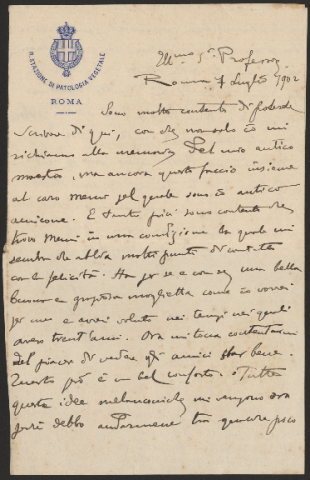 R. STAZIONE DI PATOLOGIA VEGETALE
ROMA
Ill.mo Sr. Professor
Roma 7 Luglio 1902
Sono molto contento di poterle
scrivere di qui, con che non solo io mi
richiamo alla memoria del mio antico
maestro, ma ancora questo faccio insieme
al caro Memi del quale sono io antico
amicone. E tanto più sono contento che
trovo Memi in una condizione la quale mi
sembra che abbia molti punti di contatto
con la felicità. Ha per sè e con sè una bella
buona e graziosa moglietta come io vorrei
per me e avrei voluto nei tempi nei quali
avevo trent'anni. Ora mi tocca contentarmi
del piacere di vedere gli amici star bene.
Questo pure è un bel conforto. Tutte
queste idee melanconiche mi vengono ora
perchè debbo andarmene tra qualche poco